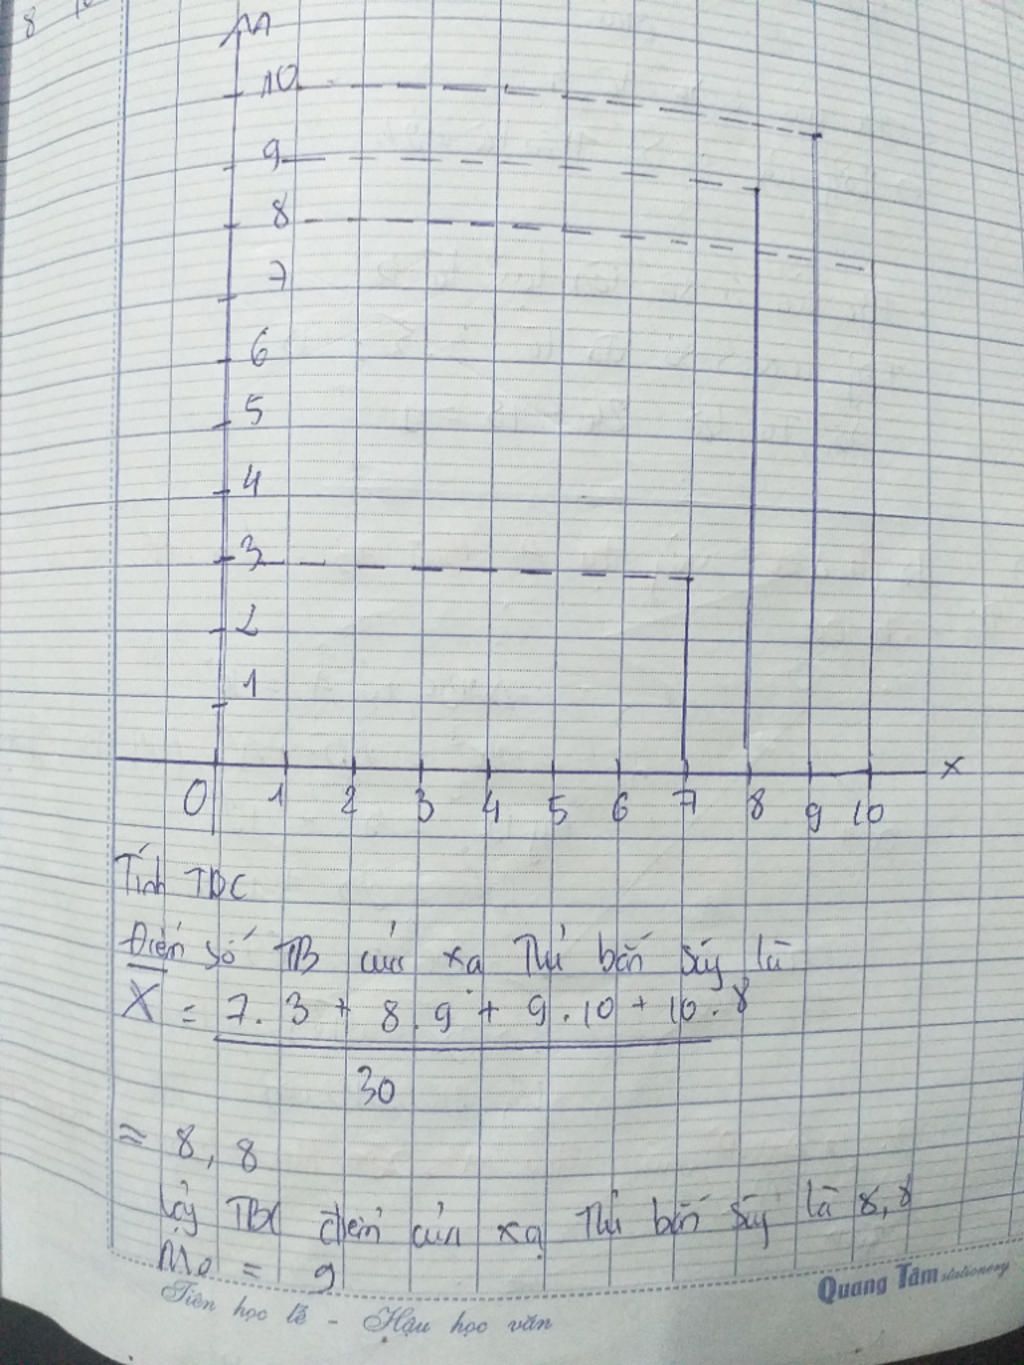 8
M
10
9
8
7
6
5
4
3
2
1
0 1 2 3 4 5 6 7 8 9 10 x
Tính TBC
Điểm số TB của xạ Thủ bắn súng là
X = 7.3 + 8.9 + 9.10 + 10.8
30
≈ 8,8
Vậy TBC điểm của xạ Thủ bắn súng là 8,8
Mo = 9
Tiên học lễ - Hậu học văn
Quang Tâm stationery